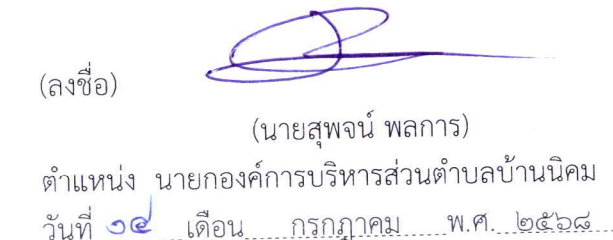 (ลงชื่อ)
(นายสุพจน์ พลการ)
ตำแหน่ง นายกองค์การบริหารส่วนตำบลบ้านนิคม
วันที่ ๑๔ เดือน กรกฎาคม พ.ศ. ๒๕๖๘